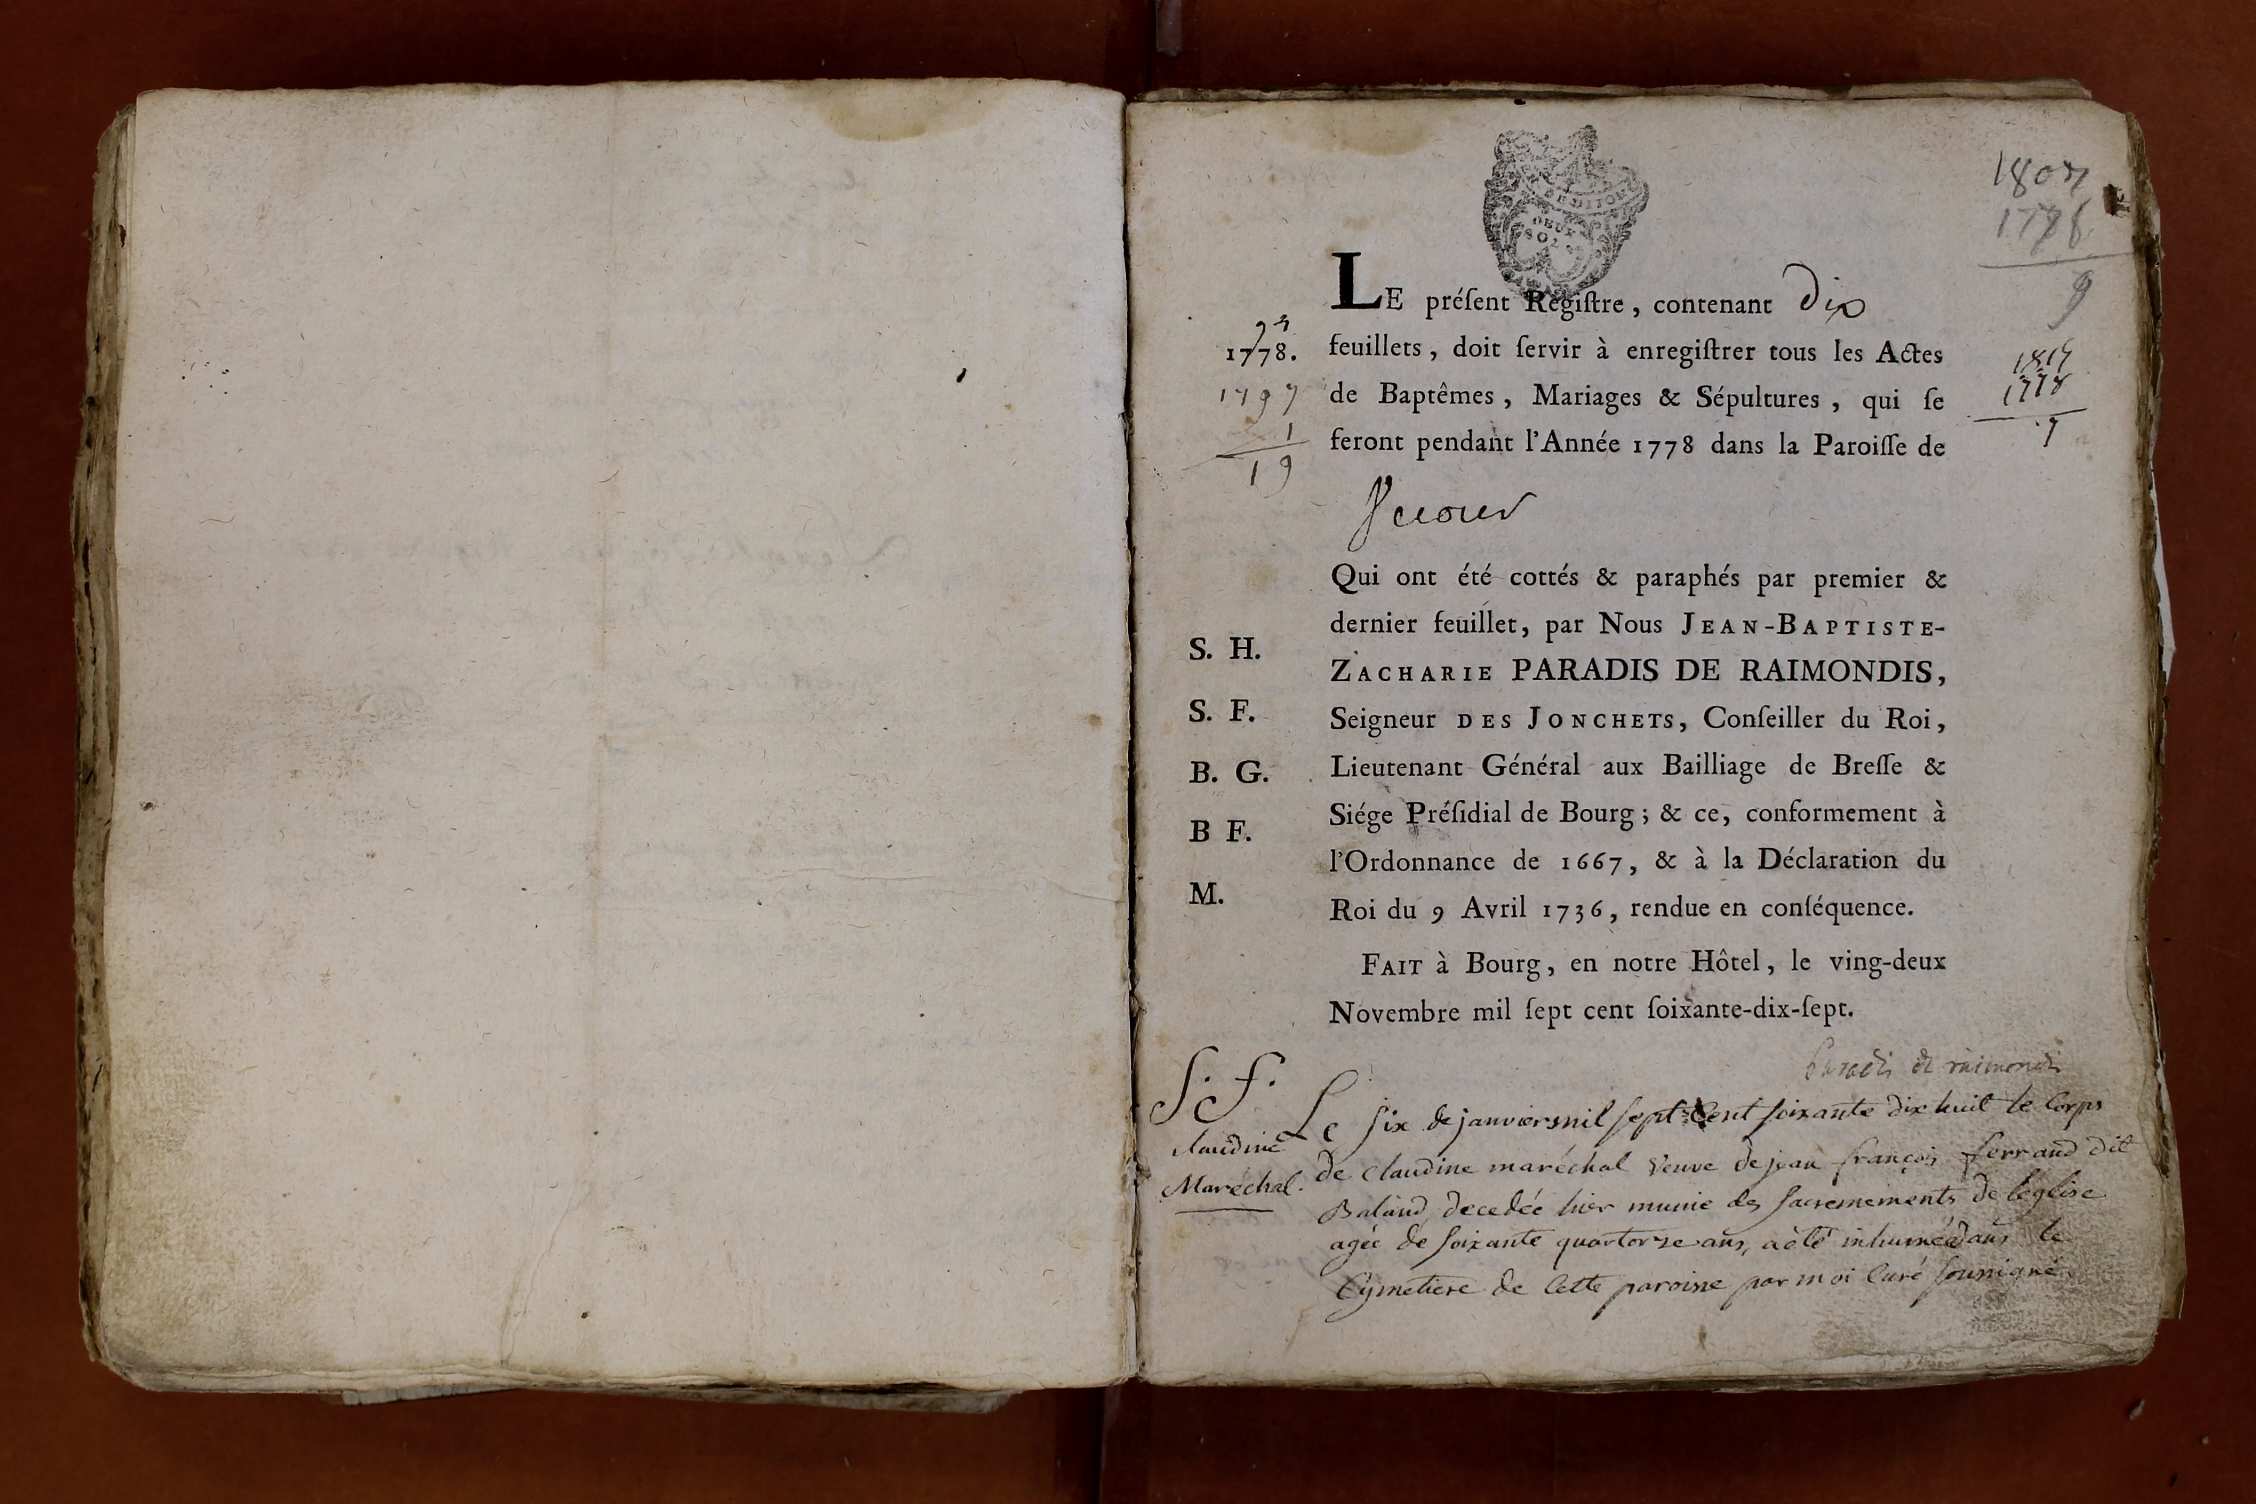 DEUX
SOLS
LE préſent Regiſtre, contenant dix
feuillets, doit ſervir à enregiſtrer tous les Actes
de Baptêmes, Mariages & Sépultures, qui ſe
feront pendant l'Année 1778 dans la Paroiſſe de
Qui ont été cottés & paraphés par premier &
dernier feuillet, par Nous JEAN-BAPTISTE-
ZACHARIE PARADIS DE RAIMONDIS,
Seigneur DES JONCHETS, Conſeiller du Roi,
Lieutenant Général aux Bailliage de Breſſe &
Siége Préſidial de Bourg; & ce, conformement à
l'Ordonnance de 1667, & à la Déclaration du
Roi du 9 Avril 1736, rendue en conſéquence.
FAIT à Bourg, en notre Hôtel, le ving-deux
Novembre mil ſept cent ſoixante-dix-ſept.
1778.
1797
1
19
S. H.
S. F.
B. G.
B F.
M.
1778
9
1778
Paradis de raimondis
S. f.
claudine
Maréchal.
Le six de janvier mil sept Cent soixante dix huit le Corps
de Claudine maréchal veuve de jean françois ferrand dit
Baland decedée hier munie des sacremements de leglise
agée de soixante quatorze ans, a èté inhumée dans le
Cymetiere de Cette paroisse par moi Curé soussigné